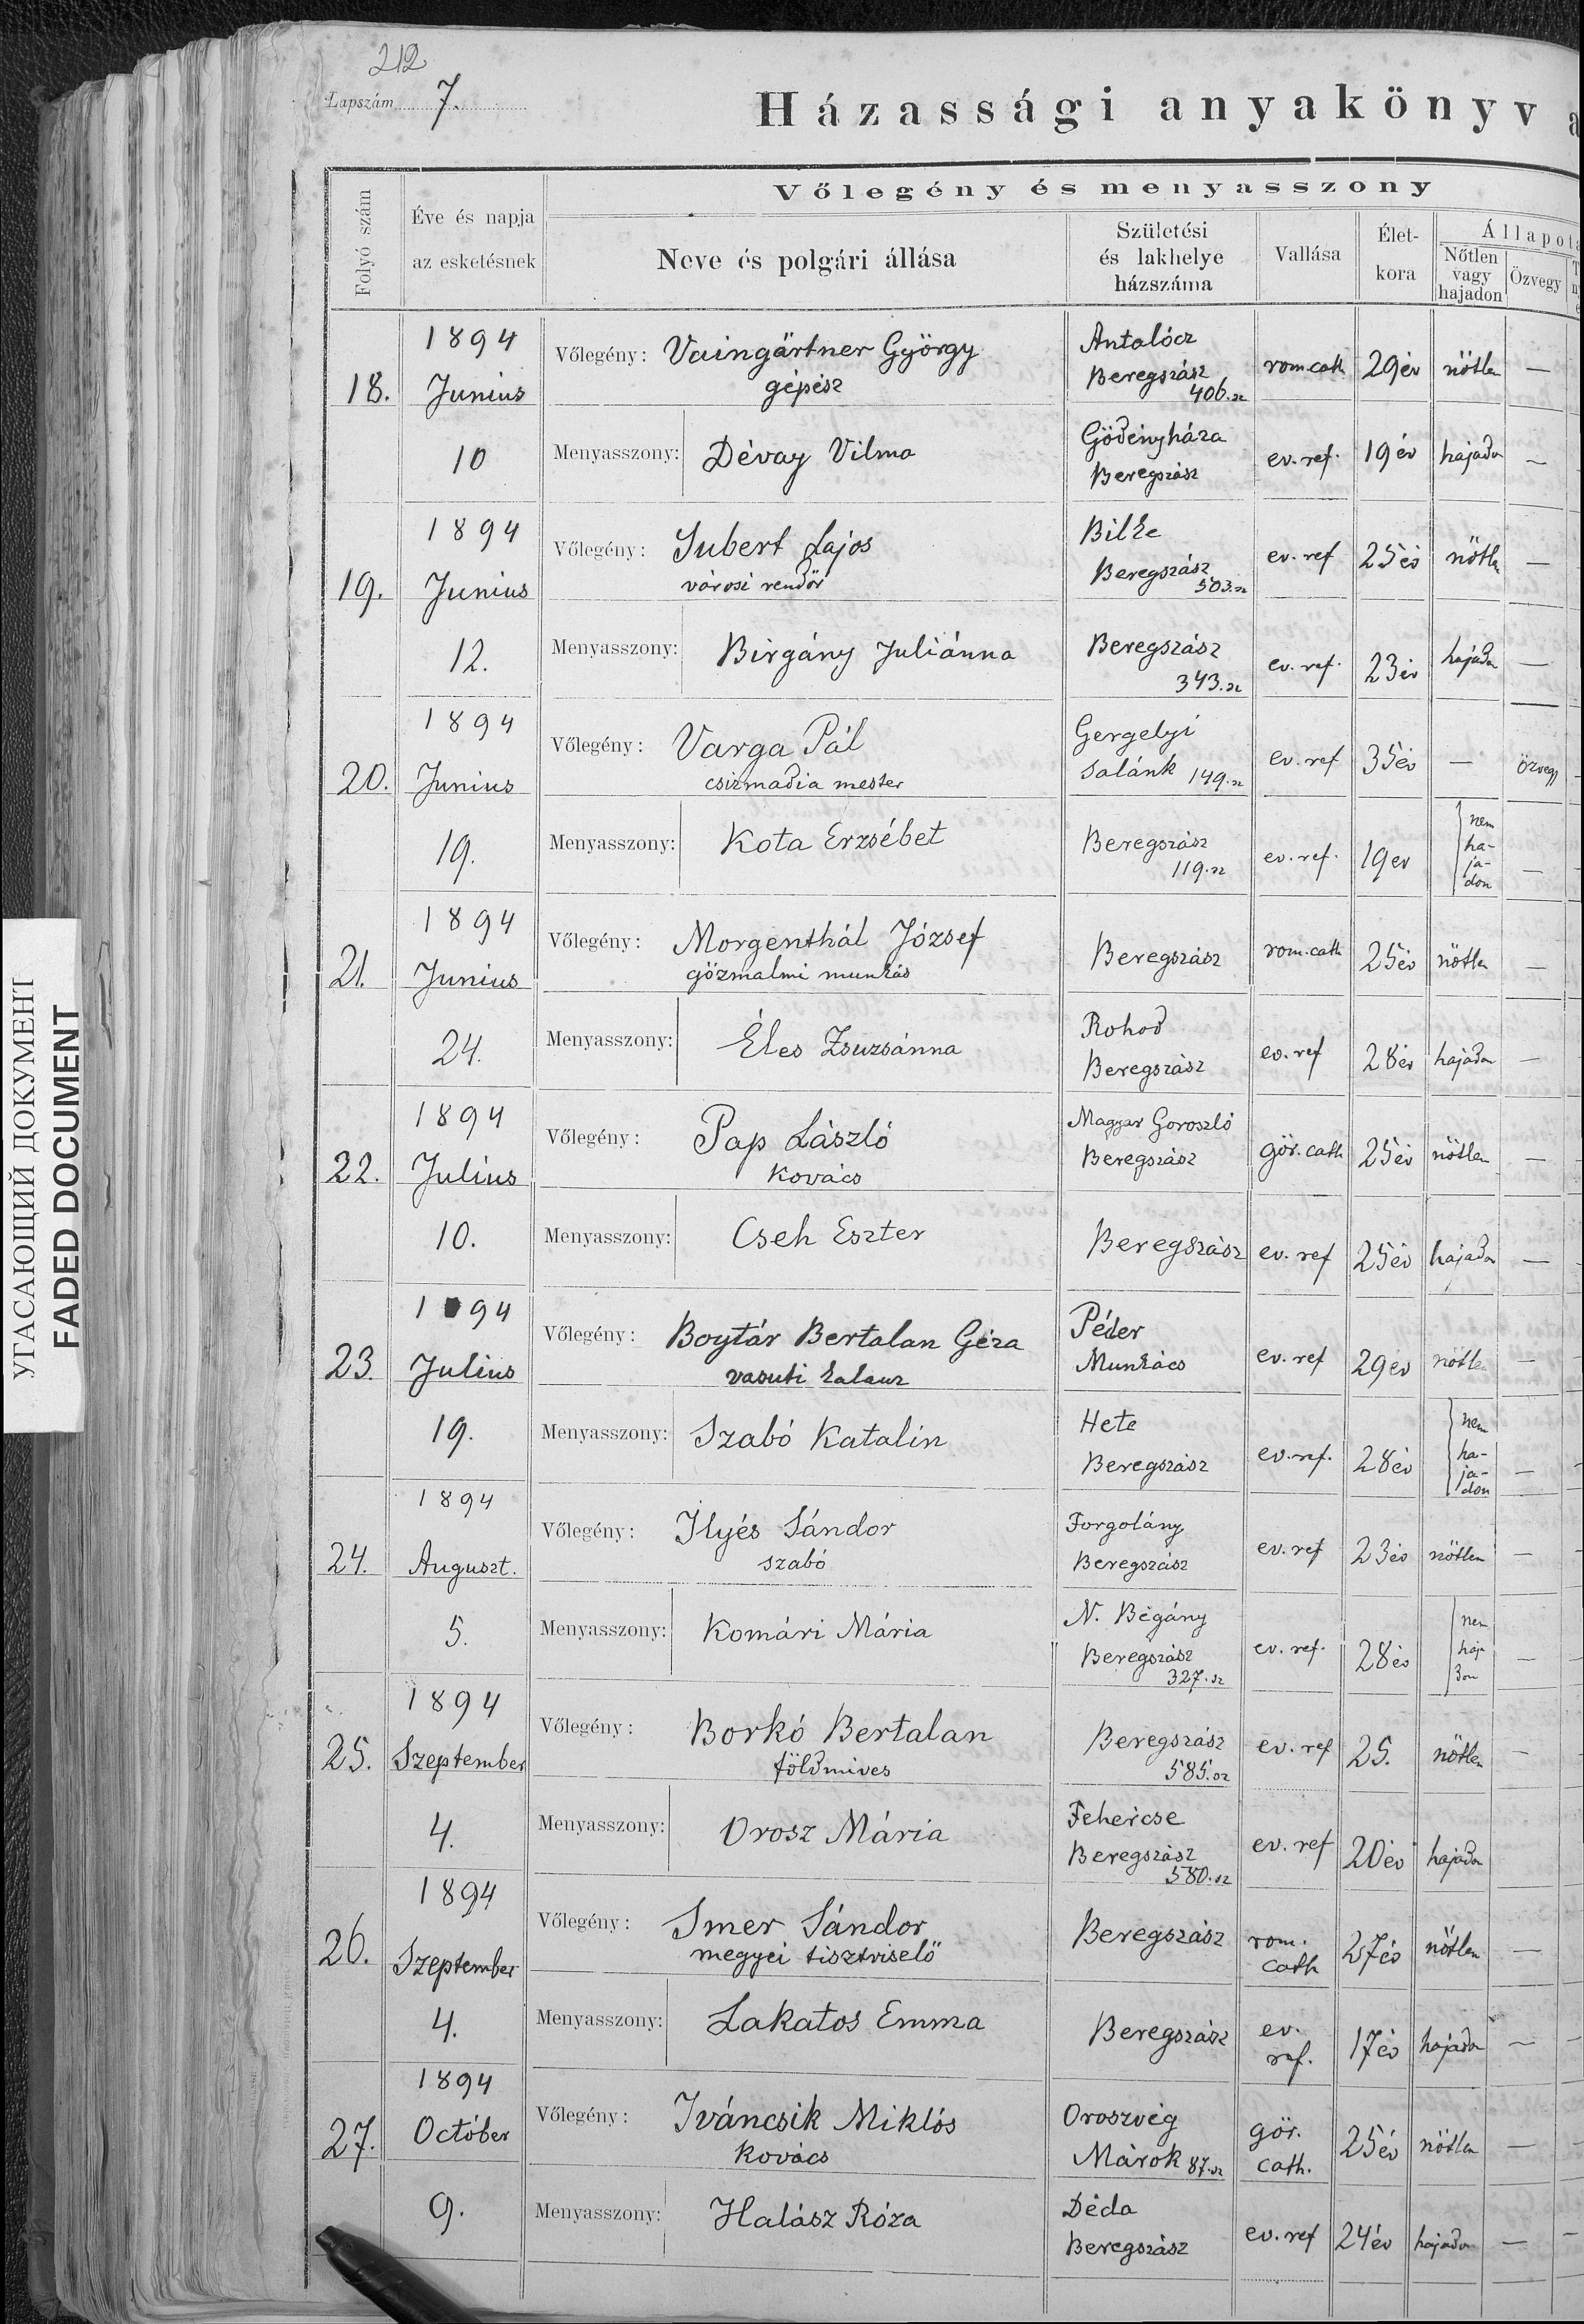 212
Lapszám 7.
Házassági anyakönyv a
Vőlegény és menyasszony
Folyó szám
Éve és napja
az esketésnek
Neve és polgári állása
Születési
és lakhelye
házszáma
Vallása
Élet-
kora
Állapota
Nőtlen
vagy
hajadon
Özvegy
18.
1894
Junius
10
Vőlegény: Vaingärtner György
gépész
Antalócz
Beregszász
406.sz
rom.cath
29 év
nőtlen
—
Menyasszony: Dévay Vilma
Gödényháza
Beregszász
ev. ref.
19 év
hajadon
—
19.
1894
Junius
12.
Vőlegény: Subert Lajos
városi rendőr
Bilke
Beregszász
503.sz
ev. ref
25 év
nőtlen
—
Menyasszony: Birgány Juliánna
Beregszász
343.sz
ev. ref.
23 év
hajadon
—
20.
1894
Junius
19.
Vőlegény: Varga Pál
csizmadia mester
Gergelyi
Salánk 149.sz
ev. ref
35 év
—
özvegy
Menyasszony: Kota Erzsébet
Beregszász
119.sz
ev. ref.
19 ev
nem
ha-
ja-
don
—
21.
1894
Junius
24.
Vőlegény: Morgenthál József
gőzmalmi munkás
Beregszász
rom.cath
25 év
nőtlen
—
Menyasszony: Éles Zsuzsánna
Rohod
Beregszász
ev. ref
28 év
hajadon
—
22.
1894
Julius
10.
Vőlegény: Pap László
Kovács
Magyar Goroszló
Beregszász
gör. cath
25 év
nőtlen
—
Menyasszony: Cseh Eszter
Beregszász
ev. ref
25 év
hajadon
—
23.
1894
Julius
19.
Vőlegény: Boytár Bertalan Géza
vasuti kalauz
Péder
Munkács
ev. ref
29 ev
nőtlen
—
Menyasszony: Szabó Katalin
Hete
Beregszász
ev. ref.
28 év
nem
ha-
ja-
don
—
24.
1894
Auguszt.
5.
Vőlegény: Ilyés Sándor
szabó
Forgolány
Beregszász
ev. ref
23 év
nőtlen
—
Menyasszony: Komári Mária
N. Bégány
Beregszász
327.sz
ev. ref.
28 év
nem
haja
don
—
25.
1894
Szeptember
4.
Vőlegény: Borkó Bertalan
földmives
Beregszász
585.sz
ev. ref
25.
nőtlen
—
Menyasszony: Orosz Mária
Fehércse
Beregszász
580.sz
ev. ref
20 év
hajadon
26.
1894
Szeptember
4.
Vőlegény: Imer Sándor
megyei tisztviselő
Beregszász
rom.
cath
27 év
nőtlen
—
Menyasszony: Lakatos Emma
Beregszász
ev.
ref.
17 év
hajadon
—
27.
1894
Octóber
9.
Vőlegény: Iváncsik Miklós
Kovács
Oroszvég
Márok 87.sz
gör.
cath.
25 év
nőtlen
—
Menyasszony: Halász Róza
Déda
Beregszász
ev. ref
24 év
hajadon
—
УГАСАЮЩИЙ ДОКУМЕНТ
FADED DOCUMENT